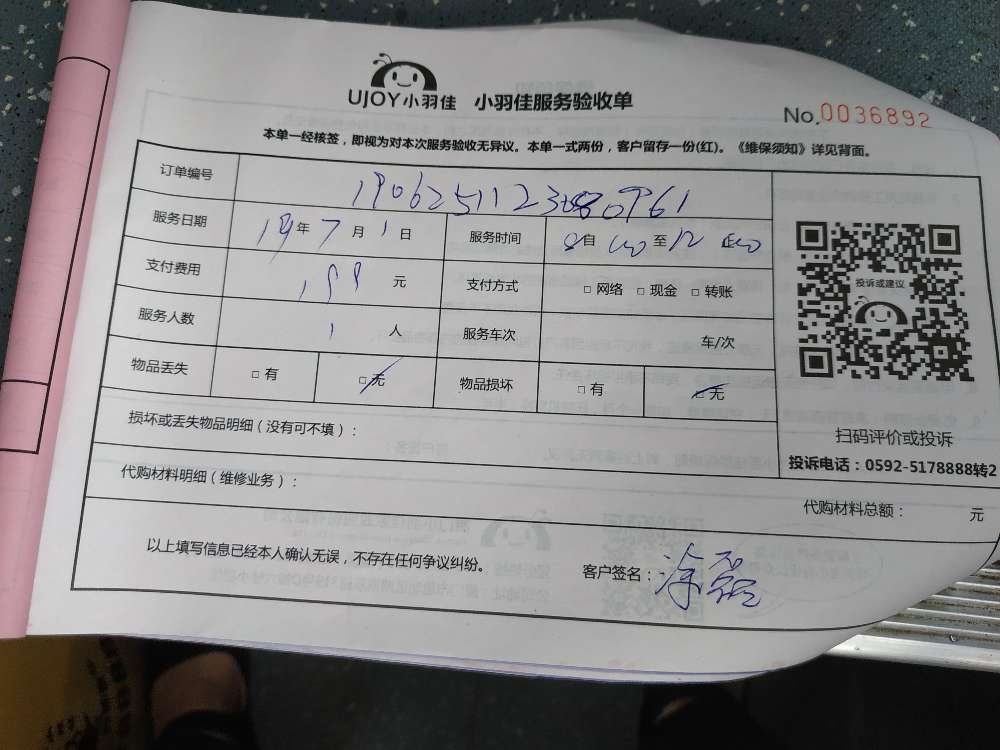 UJOY小羽佳 小羽佳服务验收单
No.0036892
本单一经核签，即视为对本次服务验收无异议。本单一式两份，客户留存一份(红)。《维保须知》详见背面。
订单编号
服务日期 19年7月1日 服务时间 8自00至12 00
支付费用 199 元 支付方式 □网络 □现金 □转账
服务人数 1 人 服务车次 车/次
物品丢失 □有 □无 物品损坏 □有 □无
损坏或丢失物品明细（没有可不填）：
代购材料明细（维修业务）：
代购材料总额： 元
以上填写信息已经本人确认无误，不存在任何争议纠纷。
客户签名：涂磊
投诉或建议
扫码评价或投诉
投诉电话：0592-5178888转2